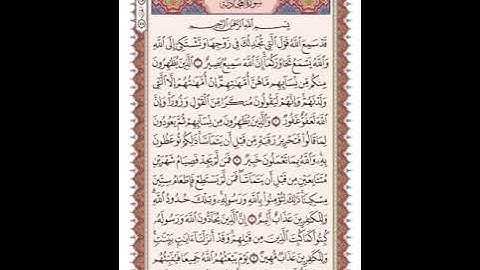 سُورَةُ المُجَادلَةِ
بِسْمِ ٱللَّهِ ٱلرَّحْمَٰنِ ٱلرَّحِيمِ
قَدْ سَمِعَ ٱللَّهُ قَوْلَ ٱلَّتِى تُجَٰدِلُكَ فِى زَوْجِهَا وَتَشْتَكِىٓ إِلَى ٱللَّهِ
وَٱللَّهُ يَسْمَعُ تَحَاوُرَكُمَآ إِنَّ ٱللَّهَ سَمِيعٌۢ بَصِيرٌ ١ ٱلَّذِينَ يُظَٰهِرُونَ
مِنكُم مِّن نِّسَآئِهِم مَّا هُنَّ أُمَّهَٰتِهِمْ إِنْ أُمَّهَٰتُهُمْ إِلَّا ٱلَّٰٓـِٔى
وَلَدْنَهُمْ وَإِنَّهُمْ لَيَقُولُونَ مُنكَرًا مِّنَ ٱلْقَوْلِ وَزُورًا وَإِنَّ
ٱللَّهَ لَعَفُوٌّ غَفُورٌ ٢ وَٱلَّذِينَ يُظَٰهِرُونَ مِن نِّسَآئِهِمْ ثُمَّ يَعُودُونَ
لِمَا قَالُوا۟ فَتَحْرِيرُ رَقَبَةٍ مِّن قَبْلِ أَن يَتَمَآسَّا ذَٰلِكُمْ تُوعَظُونَ
بِهِۦ وَٱللَّهُ بِمَا تَعْمَلُونَ خَبِيرٌ ٣ فَمَن لَّمْ يَجِدْ فَصِيَامُ شَهْرَيْنِ
مُتَتَابِعَيْنِ مِن قَبْلِ أَن يَتَمَآسَّا فَمَن لَّمْ يَسْتَطِعْ فَإِطْعَامُ سِتِّينَ
مِسْكِينًا ذَٰلِكَ لِتُؤْمِنُوا۟ بِٱللَّهِ وَرَسُولِهِۦ وَتِلْكَ حُدُودُ ٱللَّهِ
وَلِلْكَٰفِرِينَ عَذَابٌ أَلِيمٌ ٤ إِنَّ ٱلَّذِينَ يُحَآدُّونَ ٱللَّهَ وَرَسُولَهُۥ
كُبِتُوا۟ كَمَا كُبِتَ ٱلَّذِينَ مِن قَبْلِهِمْ وَقَدْ أَنزَلْنَآ ءَايَٰتٍۭ بَيِّنَٰتٍ
وَلِلْكَٰفِرِينَ عَذَابٌ مُّهِينٌ ٥ يَوْمَ يَبْعَثُهُمُ ٱللَّهُ جَمِيعًا فَيُنَبِّئُهُم